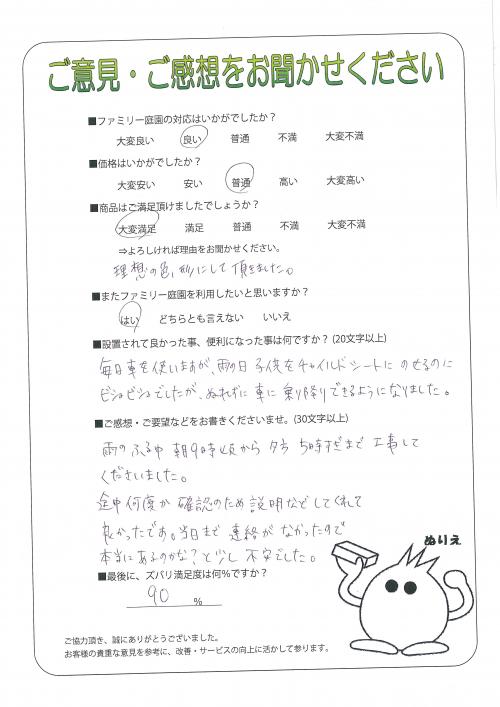 ご意見・ご感想をお聞かせください
■ファミリー庭園の対応はいかがでしたか？
大変良い 良い 普通 不満 大変不満
■価格はいかがでしたか？
大変安い 安い 普通 高い 大変高い
■商品はご満足頂けましたでしょうか？
大変満足 満足 普通 不満 大変不満
⇒よろしければ理由をお聞かせください。
理想の色、形にして頂きました。
■またファミリー庭園を利用したいと思いますか？
はい どちらとも言えない いいえ
■設置されて良かった事、便利になった事は何ですか？(20文字以上)
毎日車を使いますが、雨の日 子供をチャイルドシートに のせるのに
ビショビショでしたが、ぬれずに 車に 乗り降りできるようになりました。
■ご感想・ご要望などをお書きくださいませ。(30文字以上)
雨の ふる中 朝9時頃から 夕方 5時すぎまで 工事して
くださいました。
途中 何度か 確認のため 説明など してくれて
良かったです。当日まで 連絡が なかったので
本当にあるのかな？と少し 不安でした。
ぬりえ
■最後に、ズバリ満足度は何％ですか？
90 %
ご協力頂き、誠にありがとうございました。
お客様の貴重な意見を参考に、改善・サービスの向上に活かして参ります。